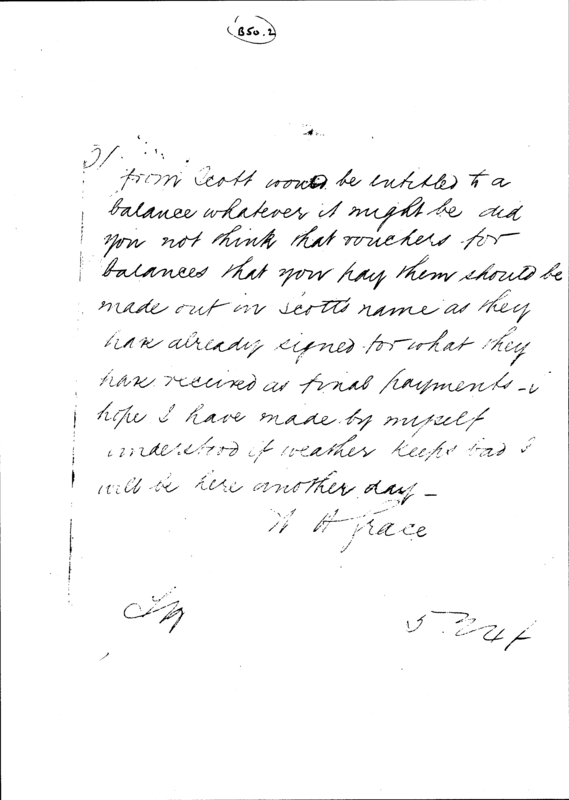 B50.2
3/
from Scott would be entitled to a
balance whatever it might be did
you not think that vouchers for
balances that you pay them should be
made out in Scotts name as they
have already signed for what they
have received as final payments - i
hope I have made by myself
understood if weather keeps bad I
will be here another day -
W H Grace